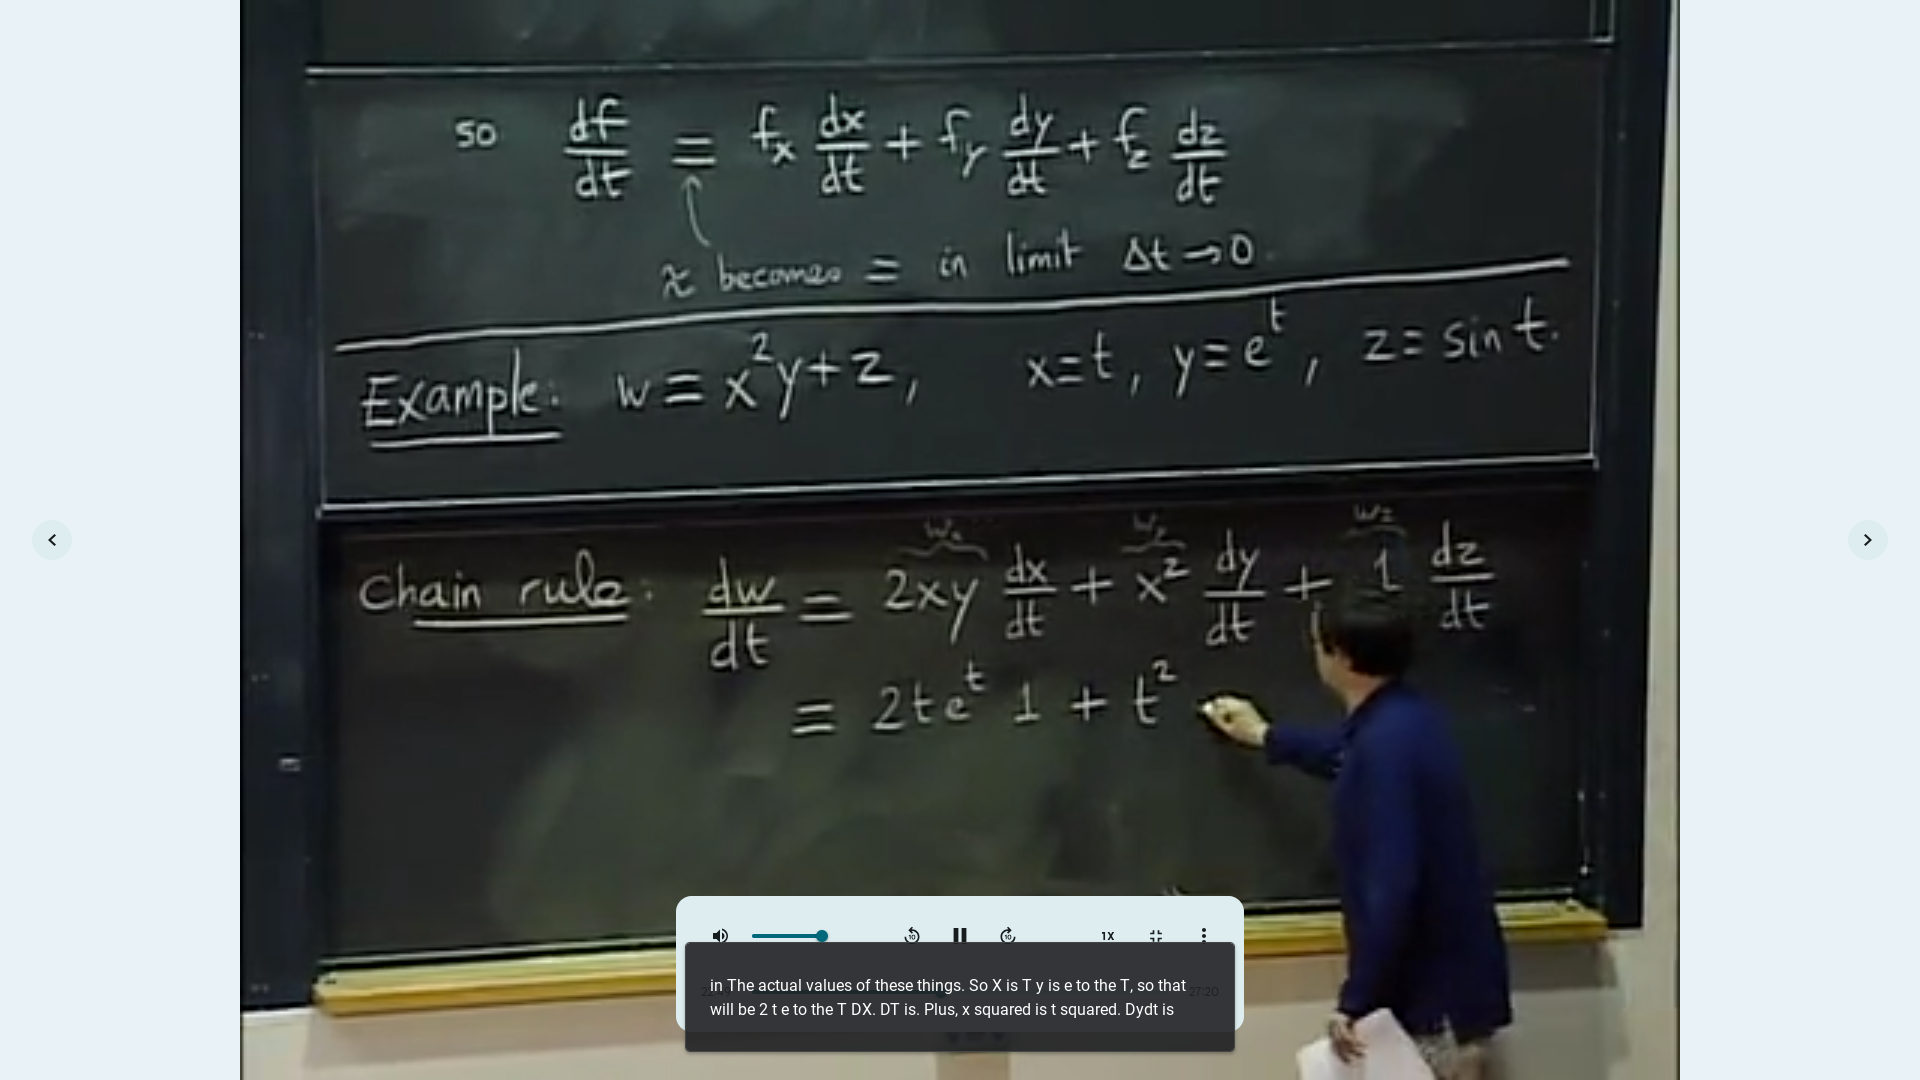 so df/dt = f_x dx/dt + f_y dy/dt + f_z dz/dt
≈ becomes = in limit Δt → 0.
Example: w = x²y + z, x = t, y = e^t, z = sin t.
w_x w_y w_z
Chain rule: dw/dt = 2xy dx/dt + x² dy/dt + 1 dz/dt
= 2te^t 1 + t²
10 10 1X
in The actual values of these things. So X is T y is e to the T, so that
27:20
will be 2 t e to the T DX. DT is. Plus, x squared is t squared. Dydt is